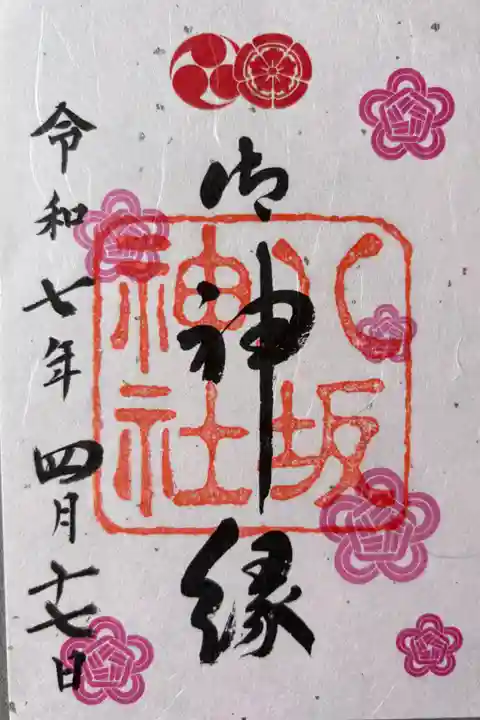 御神縁
八坂神社
令和七年四月十七日